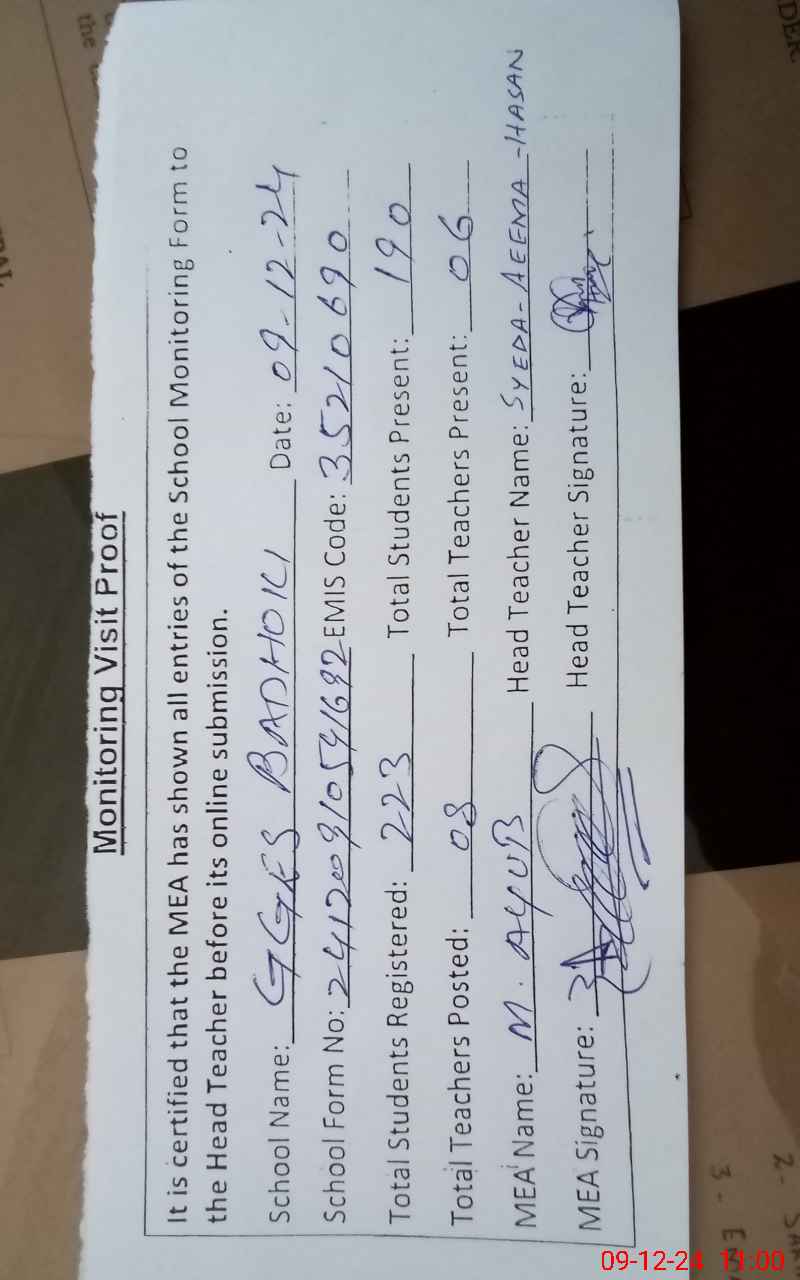 Monitoring Visit Proof
It is certified that the MEA has shown all entries of the School Monitoring Form to
the Head Teacher before its online submission.
School Name: GGES BADHOKI Date: 09-12-24
School Form No: 241209105941692 EMIS Code: 35210690
Total Students Registered: 223 Total Students Present: 190
Total Teachers Posted: 08 Total Teachers Present: 06
MEA Name: M. AYUB Head Teacher Name: SYEDA-AEEMA-HASAN
MEA Signature: Head Teacher Signature:
the
DER
2-
3-
09-12-24 11:00